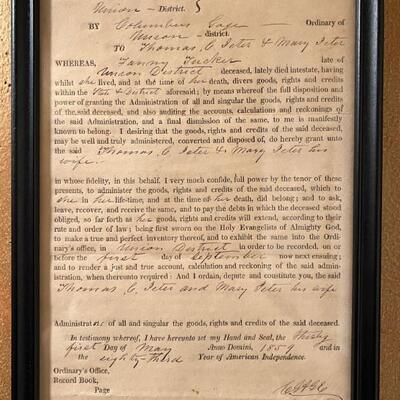 Union - District.
BY Columbus Gage Ordinary of
Union - district.
TO Thomas C Jeter & Mary Jeter
WHEREAS, Fanny Tucker late of
Union District, deceased, lately died intestate, having
whilst she lived, and at the time of her death, divers goods, rights and credits
within the State & District aforesaid; by means whereof the full disposition and
power of granting the Administration of all and singular the goods, rights and credits
of the said deceased, and also auditing the accounts, calculations and reckonings of
the said Administration, and a final dismission of the same, to me is manifestly
known to belong. I desiring that the goods, rights and credits of the said deceased,
may be well and truly administered, converted and disposed of, do hereby grant unto
the said Thomas C. Jeter & Mary Jeter his
wife.
in whose fidelity, in this behalf, I very much confide, full power by the tenor of these
presents, to administer the goods, rights and credits of the said deceased, which
she in her life-time, and at the time of her death, did belong; and to ask,
leave, recover, and receive the same, and to pay the debts in which the deceased stood
obliged, so far forth as her goods, rights and credits will extend, according to their
rate and order of law; being first sworn on the Holy Evangelists of Almighty God,
to make a true and perfect inventory thereof, and to exhibit the same into the Ordi-
ary's office, in Union District in order to be recorded, on or
before the first day of September now next ensuing;
and to render a just and true account, calculation and reckoning of the said admin-
istration, when thereunto required: And I ordain, depute and constitute you, the said
Thomas C. Jeter and Mary Jeter his wife
Administrators of all and singular the goods, rights and credits of the said deceased.
In testimony whereof, I have hereunto set my Hand and Seal, the thirty
first Day of May Anno Domini, 1859 and in
the eighty-third Year of American Independence.
Ordinary's Office,
Record Book,
Page